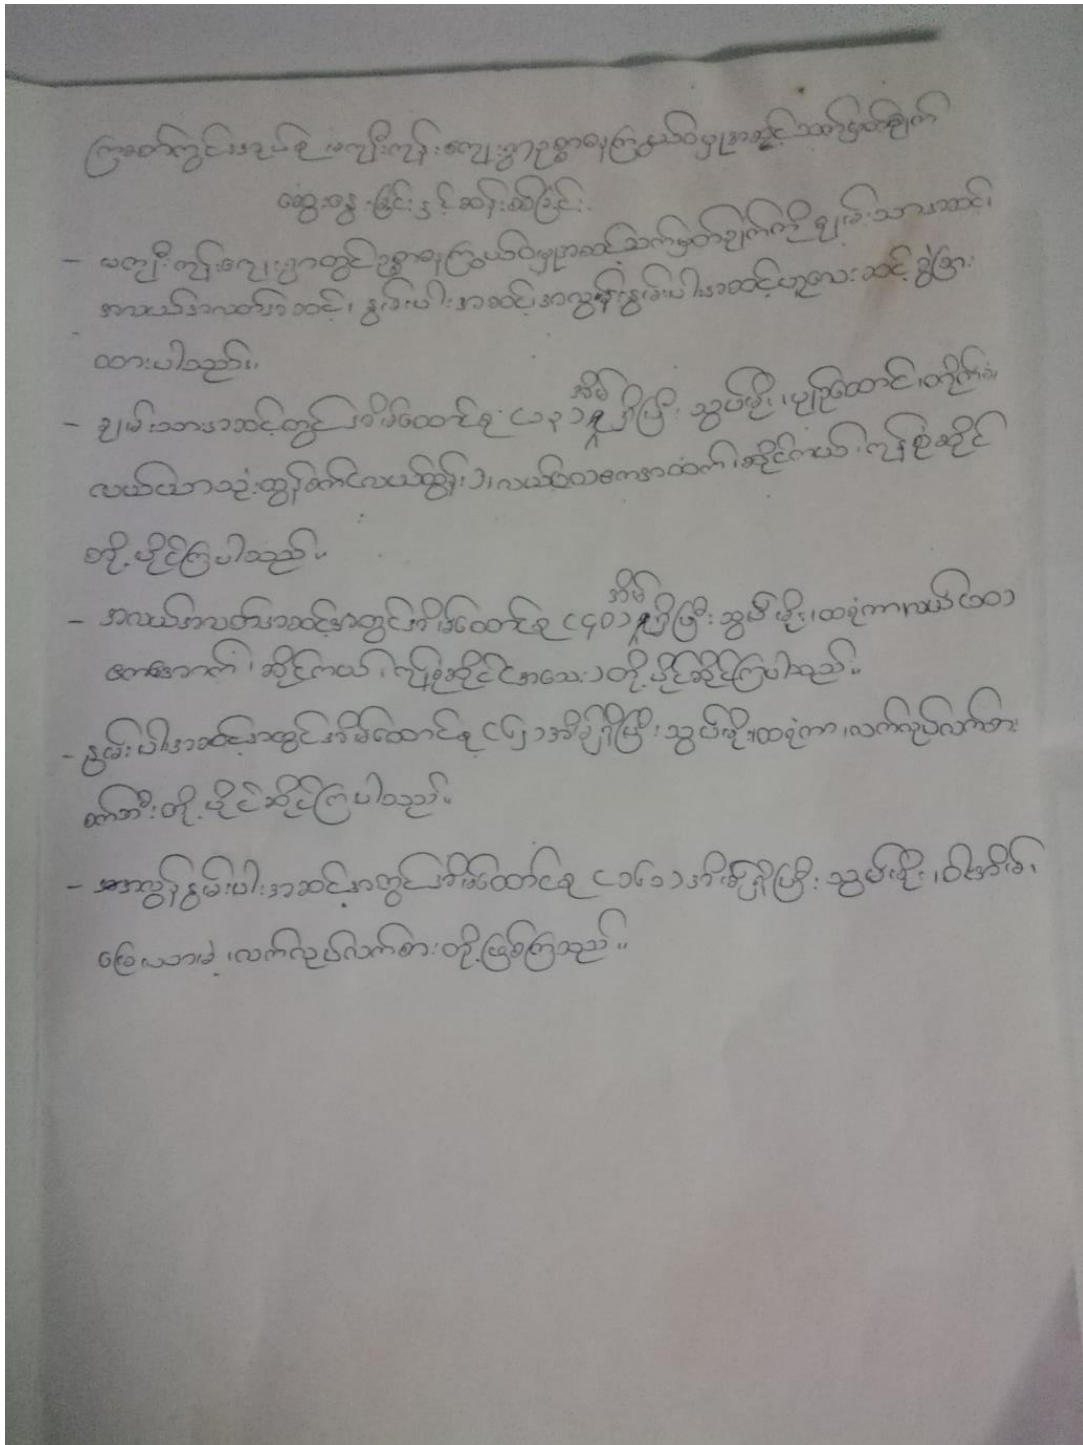 ကြခတ်ကွင်းအုပ်စု မကျီးကုန်းကျေးရွာဥစ္စာဓနကြွယ်ဝမှုအဆင့်သတ်မှတ်ချက်
ဆွေးနွေးခြင်းနှင့်ဆန်းစစ်ခြင်း
- မကျီးကုန်းကျေးရွာတွင်ဥစ္စာဓနကြွယ်ဝမှုအဆင့်သတ်မှတ်ချက်ကို ချမ်းသာအဆင့်၊
အလယ်အလတ်အဆင့်၊ နွမ်းပါးအဆင့်၊အလွန်နွမ်းပါးအဆင့်ဟူ၍လေးဆင့်ခွဲခြား
ထားပါသည်။
- ချမ်းသာအဆင့်တွင် အိမ်ထောင်စု (၁၃)အိမ်ရှိပြီး သွပ်မိုး၊ပျဉ်ထောင်၊တိုက်ခံ၊
လယ်ယာသုံးထွန်စက်(လယ်ထွန်)၊လယ်၁၀ဧကအထက်၊ဆိုင်ကယ်၊ကုန်စုံဆိုင်
တို့ပိုင်ကြပါသည်။
- အလယ်အလတ်အဆင့်အတွင်အိမ်ထောင်စု (၄၀)အိမ်ရှိပြီး သွပ်မိုး၊ထရံကာ၊လယ်(၁၀)
ဧကအောက်၊ ဆိုင်ကယ်၊ကုန်စုံဆိုင်(အသေး)တို့ပိုင်ဆိုင်ကြပါသည်။
- နွမ်းပါးအဆင့်အတွင်အိမ်ထောင်စု (၆၂)အိမ်ရှိပြီး သွပ်မိုး၊ထရံကာ၊လက်လုပ်လက်စား
စက်ဘီးတို့ပိုင်ဆိုင်ကြပါသည်။
- အလွန်နွမ်းပါးအဆင့်အတွင်အိမ်ထောင်စု (၁၆၁)အိမ်ရှိပြီး သွပ်မိုး၊ဝါးအိမ်၊
မြေယာမဲ့၊လက်လုပ်လက်စားတို့ဖြစ်ကြသည်။